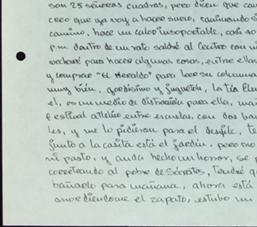 son 25 señoras cuadras, pero dicen que can
creo que ya voy a hacer sueño, caminando
camino, hace un calor insoportable, casi 40
p.m. dentro de un rato saldré al centro con
para hacer algunas cosas, entre ellas
y comprar "El Heraldo" para leer su columna
muy bien, gordísimo y juguetón, la tía
el, es un medio de distracción para ella,
festival atlético entre escuelas, con dos
les, y me lo pidieron para el desfile,
junto a la casita está el jardín, pero
mi pasto, y anda hecho un horror, se
correteando al pobre de Sócrates, tendré
bañarlo para mañana, ahora está
mordiendome el zapato, estubo un